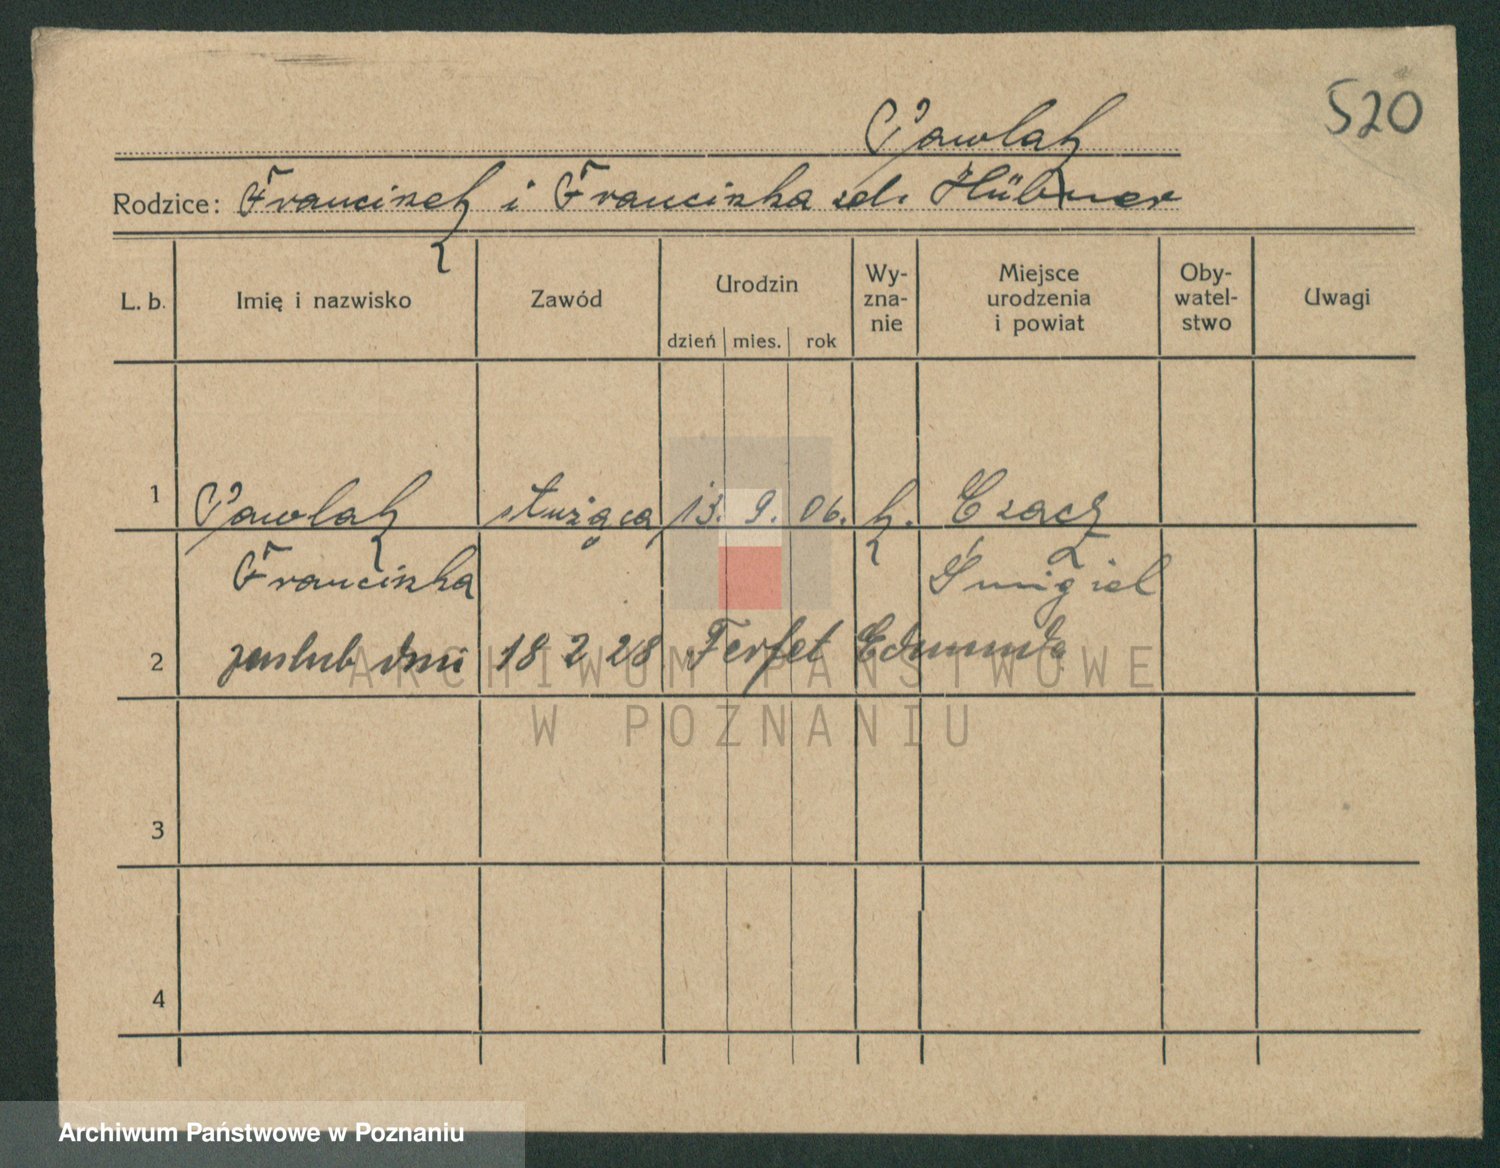 520
Pawlak
Rodzice: Franciszek i Franciszka zd. Hübner
L. b. Imię i nazwisko Zawód Urodzin dzień mies. rok Wy-zna-nie Miejsce urodzenia i powiat Oby-watel-stwo Uwagi
1 Pawlak służąca 13. 9. 06. k. Czacz
Franciszka Śmigiel
2 zaślub dnia 18 2 28 Ferfet Edmunda
3
4
ARCHIWUM PAŃSTWOWE
W POZNANIU
Archiwum Państwowe w Poznaniu